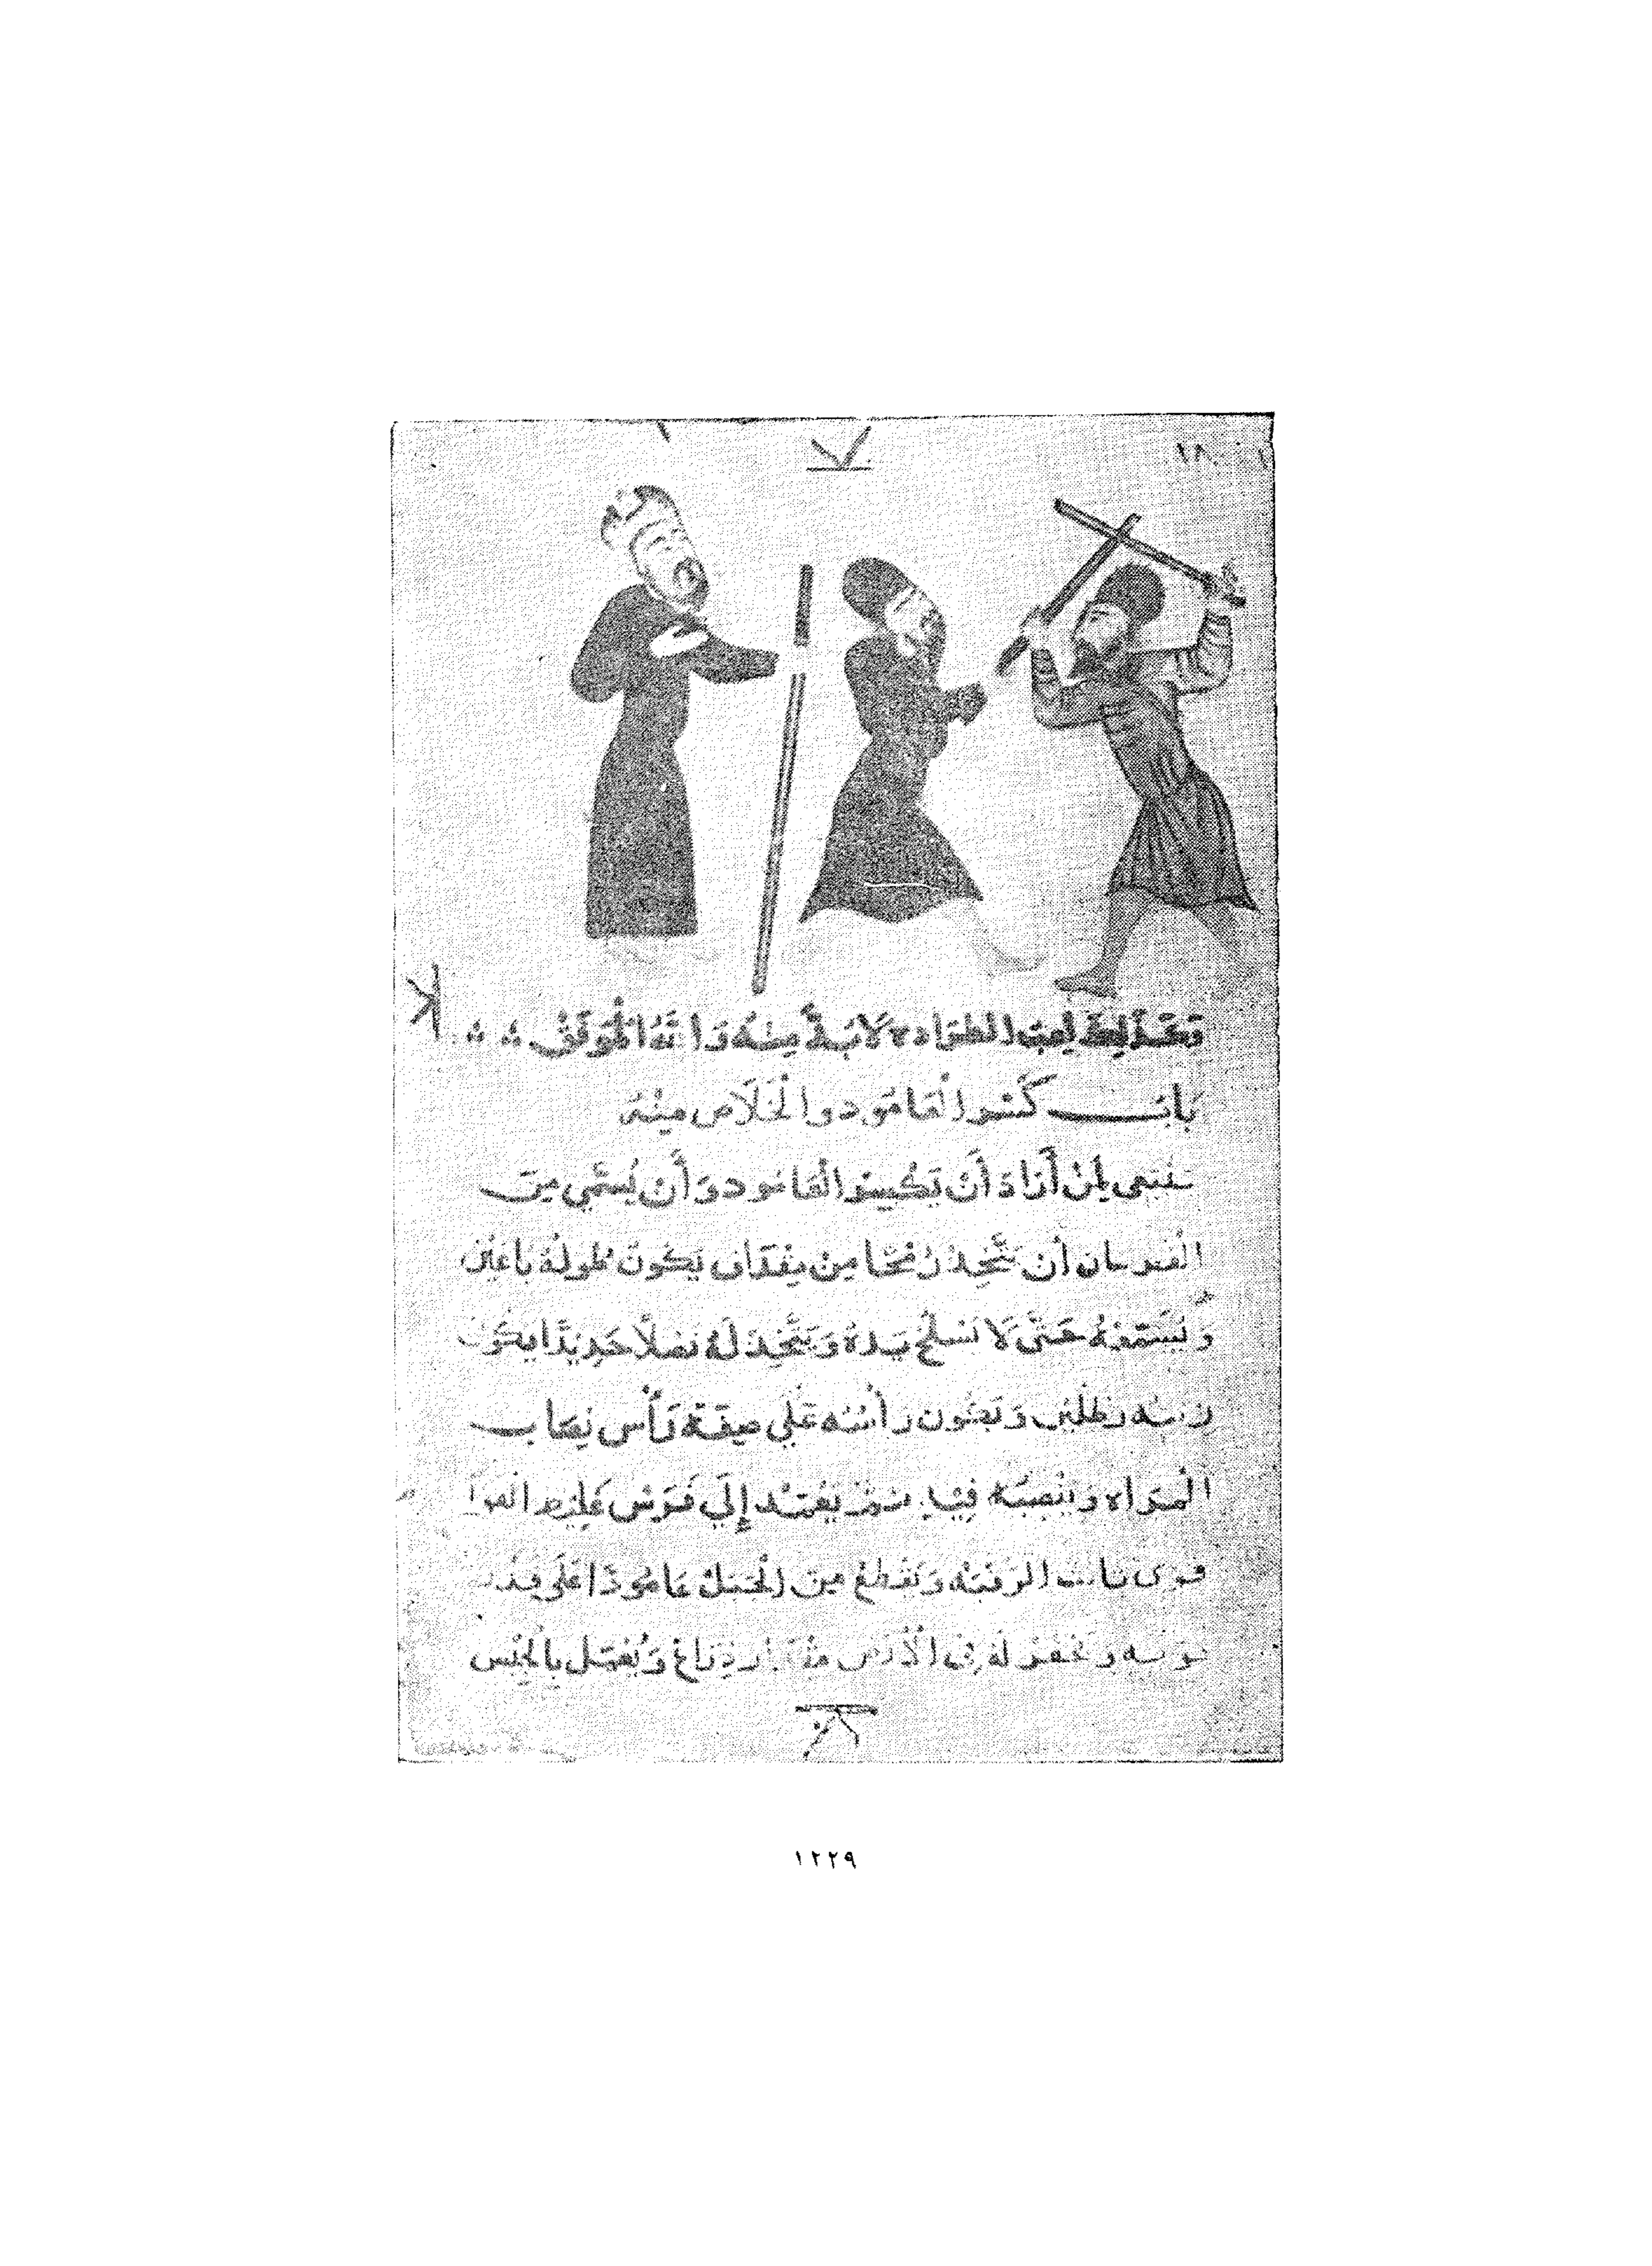 ١٨٠
وبعد ذلك لعب الطراده لا بد منه والله الموفق
باب كسر العامود والخلاص منه
ينبغي لمن أراد أن يكسر العامود وأن يسمى من
الفرسان أن يتخذ رمحا من يكون طوله باعين
حتى لا يده ويتخذ له نصلا حديدا يكون
رطلين ويكون رأسه على صفة رأس نصاب
المراه وينصبه فيه ثم يعمد إلى فرس غليظ القوا
قوى الرقبه ويقطع من عامودا على قدر
ويحفر له في الأرض ذراع ويعمل بالجبس
١٢٢٩